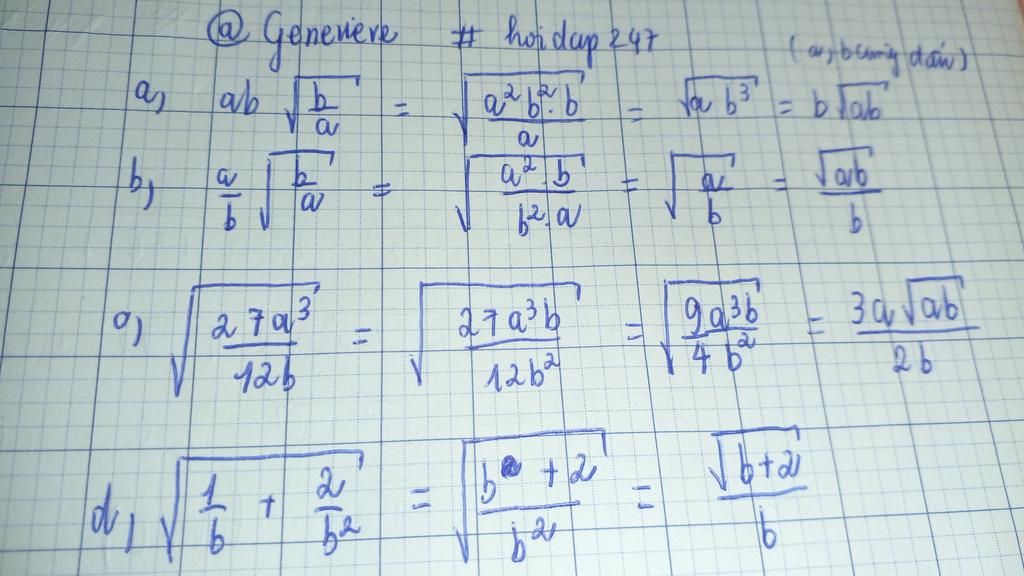 @ Genevieve # hoidap247
(a, b cùng dấu)
a, ab √(b/a) = √(a² b² . b / a) = √(a b³) = b √(ab)
b, a/b √(b/a) = √(a² . b / b² . a) = √(a/b) = √(ab) / b
c, √(27a³ / 12b) = √(27a³b / 12b²) = √(9a³b / 4b²) = 3a √(ab) / 2b
d, √(1/b + 2/b²) = √(b + 2 / b²) = √(b+2) / b